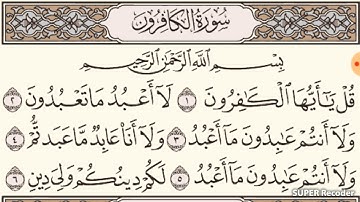 سُورَةُ الْكَافِرُونَ
بِسْمِ اللَّهِ الرَّحْمَٰنِ الرَّحِيمِ
قُلْ يَٰٓأَيُّهَا ٱلْكَٰفِرُونَ ١ لَآ أَعْبُدُ مَا تَعْبُدُونَ ٢
وَلَآ أَنتُمْ عَٰبِدُونَ مَآ أَعْبُدُ ٣ وَلَآ أَنَا۠ عَابِدٌ مَّا عَبَدتُّمْ ٤
وَلَآ أَنتُمْ عَٰبِدُونَ مَآ أَعْبُدُ ٥ لَكُمْ دِينُكُمْ وَلِىَ دِينِ ٦
SUPER Recorder